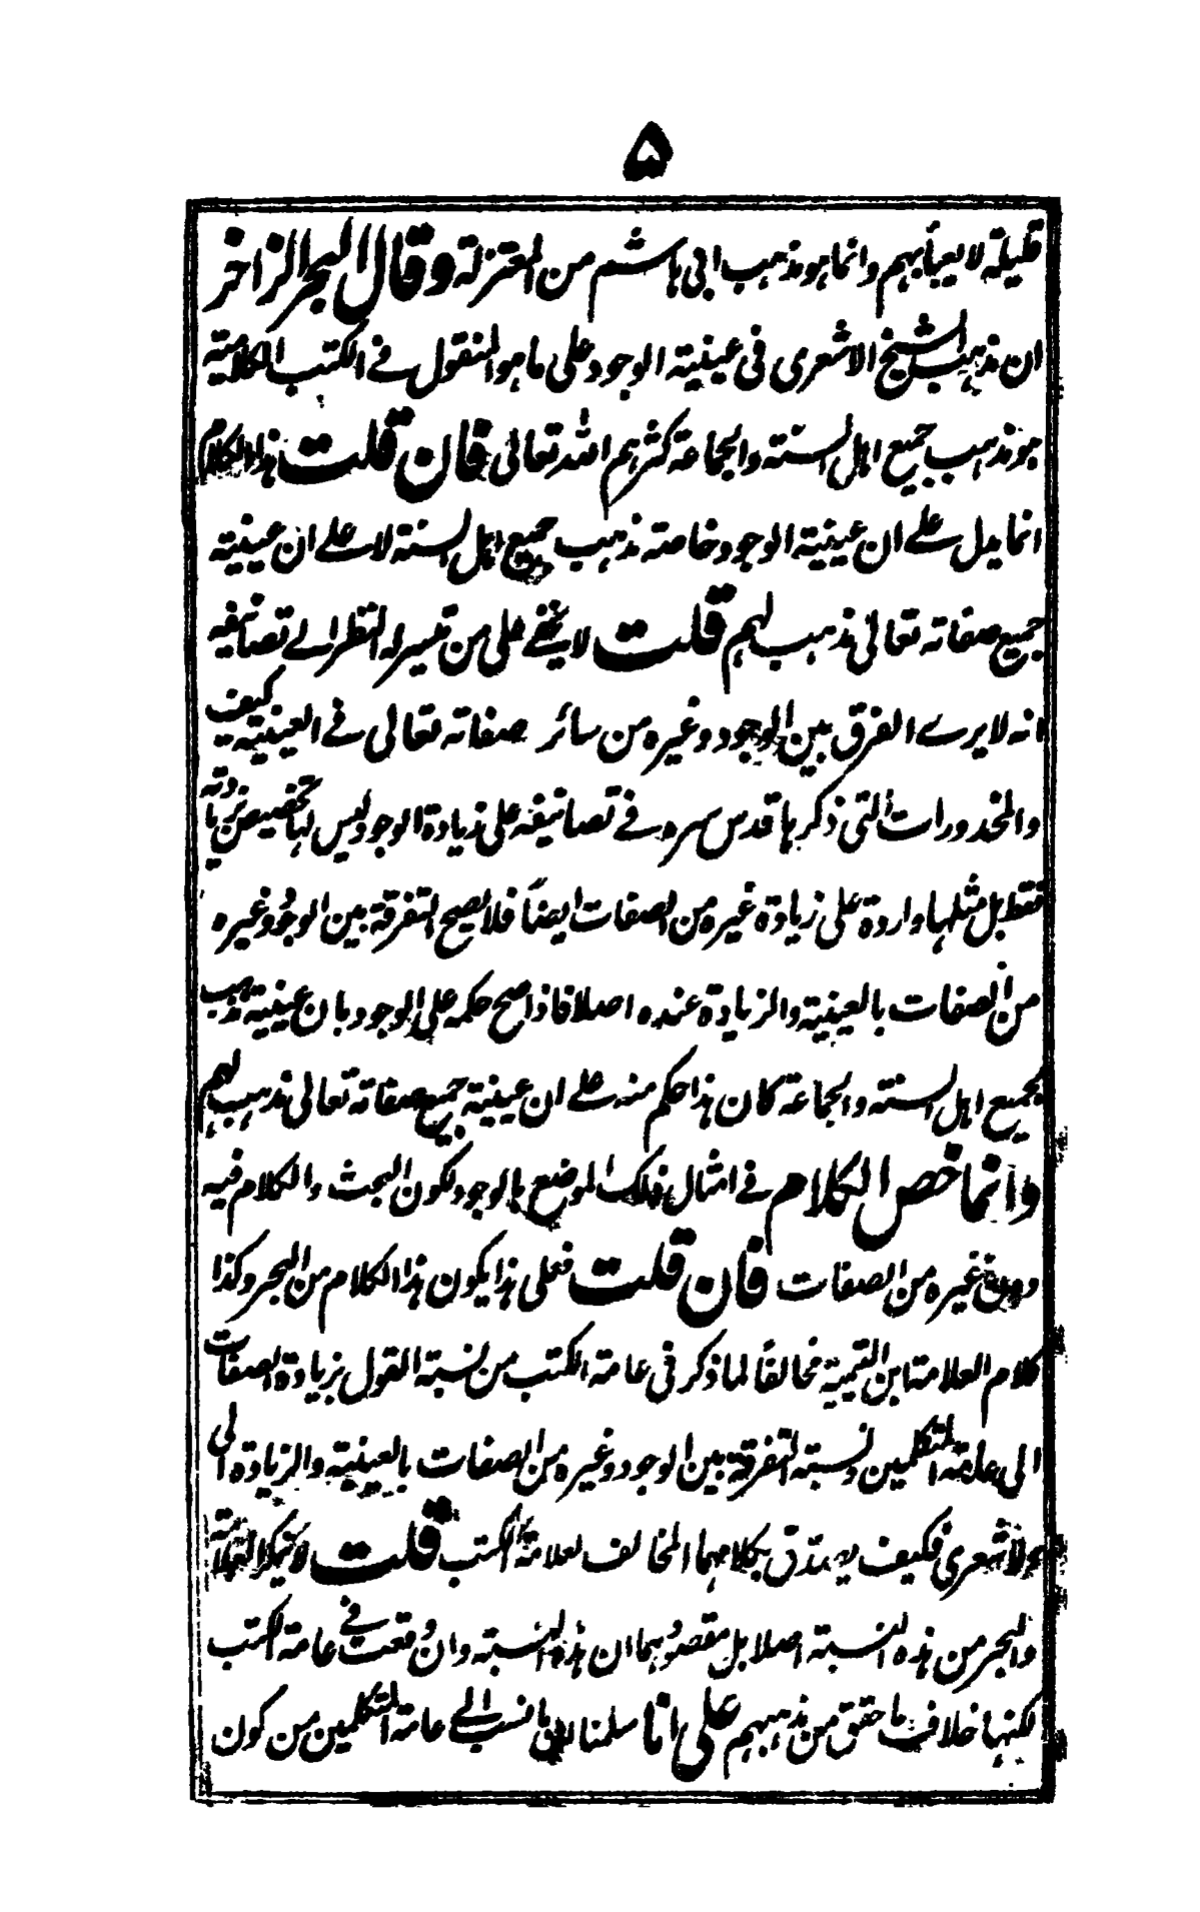 ۵
قليلة لا يعبأ بهم وانما هو مذهب ابی هاشم من المعتزلة وقال البحر الزاخر
ان مذهب الشيخ الاشعری فی عينية الوجود علی ما هو المنقول فے الكتب الكلامية
هو مذهب جميع اهل السنة والجماعة كثرهم الله تعالی فان قلت هذا الكلام
انما يدل علے ان عينية الوجود خاصة مذهب جميع اهل السنة لا علے ان عينية
جميع صفاته تعالی مذهب لهم قلت لا يخفے علی من تيسر له النظر الے تصانيفه
انه لا يرے الفرق بين الوجود وغيره من سائر صفاته تعالی فے العينية كيف
والمحذورات التی ذكرها قدس سره فے تصانيفه علی زيادة الوجود ليس لها تخصيص بزيادته
فقط بل مثلها واردة علی زيادة غيره من الصفات ايضاً فلا يصح التفرقة بين الوجود وغيره
من الصفات بالعينية والزيادة عنده اصلا فاذا صح حكمه علی الوجود بان عينية مذهب
لجميع اهل السنة والجماعة كان هذا حكم منه علے ان عينية جميع صفاته تعالی مذهب لهم
وانما خص الكلام فے امثال ذلك الموضع بالوجود لكون البحث والكلام فيه
دون غيره من الصفات فان قلت فعلی هذا يكون هذا الكلام من البحر وكذا
كلام العلامة ابن القيمية مخالفاً لما ذكر فی عامة الكتب من نسبة القول بزيادة الصفات
الی عامة المتكلمين ونسبة التفرقة بين الوجود وغيره من الصفات بالعينية والزيادة الی
الاشعری فكيف يصدق بكلامهما المخالف لعامة الكتب قلت لا ينكر العلامة
والبحر من هذه النسبة اصلا بل مقصودهما ان هذه النسبة وان وقعت فے عامة الكتب
لكنها خلاف ما حقق من مذهبهم علی انا سلمنا ان ما نسب الے عامة المتكلمين من كون